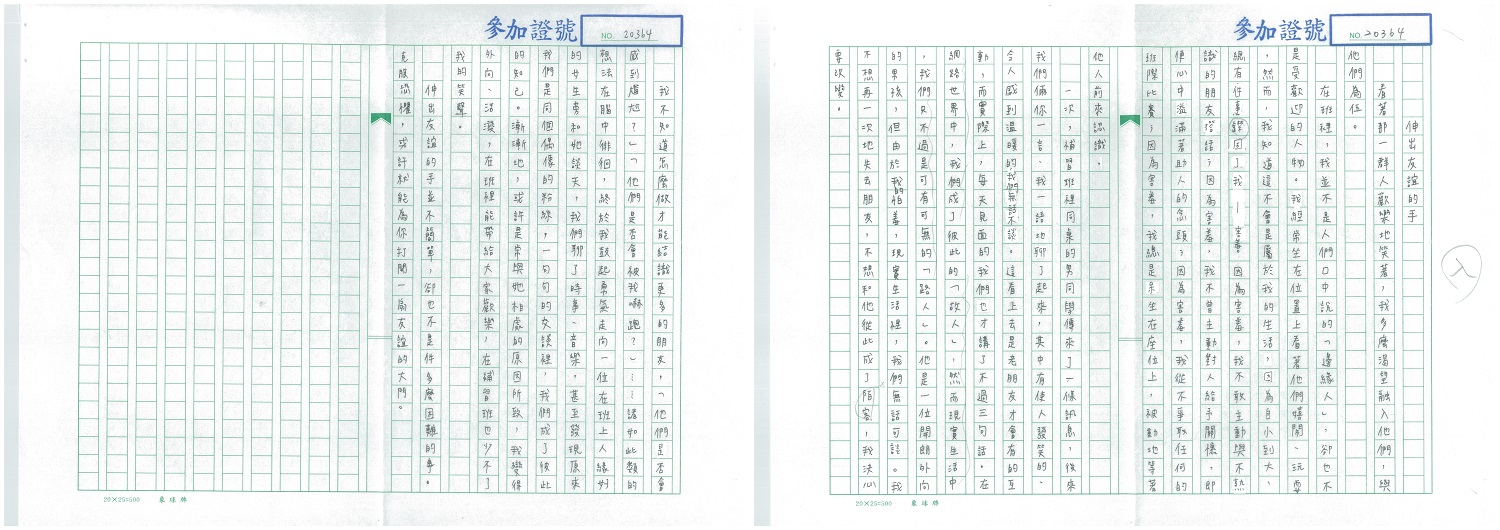 參加證號
NO. 20364
伸出友誼的手
看著那一群人歡樂地笑著，我多麼渴望融入他們，與
他們為伍。
在班裡，我並不是人們口中說的「邊緣人」，卻也不
是受歡迎的人物。我經常坐在位置上看著他們嬉鬧、玩耍
，然而，我知道這不會是屬於我的生活，因為自小到大，
總有件事鎖困了我—害羞。因為害羞，我不敢主動與不熟
識的朋友搭話；因為害羞，我不曾主動對人給予關懷，即
便心中溢滿著助人的念頭；因為害羞，我從不爭取任何的
班際比賽；因為害羞，我總是呆坐在座位上，被動地等著
他人前來認識。
一次，補習班裡同桌的男同學傳來了一條訊息，後來
我們倆你一言、我一語地聊了起來，其中有使人發笑的、
令人感到溫暖的，我們無話不談。這看上去是老朋友才會有的互
動，而實際上，每天見面的我們也才講了不過三句話。在
網路世界中，我們成了彼此的「故人」，然而現實生活中
，我們只不過是可有可無的「路人」。他是一位開朗外向
的男孩，但由於我的怕羞，現實生活裡，我們無話可談。我
不想再一次地失去朋友，不想和他從此成了陌客，我決心
要改變。
入
參加證號
NO. 20364
我不知道怎麼做才能結識更多的朋友，「他們是否會
感到尷尬？」「他們是否會被我嚇跑？」……諸如此類的
想法在腦中徘徊，終於我鼓起勇氣走向一位在班上人緣好
的女生旁和她談天，我們聊了時事、音樂，甚至發現原來
我們是同個偶像的粉絲，一句句的交談裡，我們成了彼此
的知己。漸漸地，或許是常與她相處的原因所致，我變得
外向、活潑，在班裡能帶給大家歡樂，在補習班也少不了
我的笑聲。
伸出友誼的手並不簡單，卻也不是件多麼困難的事。
克服恐懼，或許就能為你打開一扇友誼的大門。
20×25=500 象球牌
20×25=500 象球牌